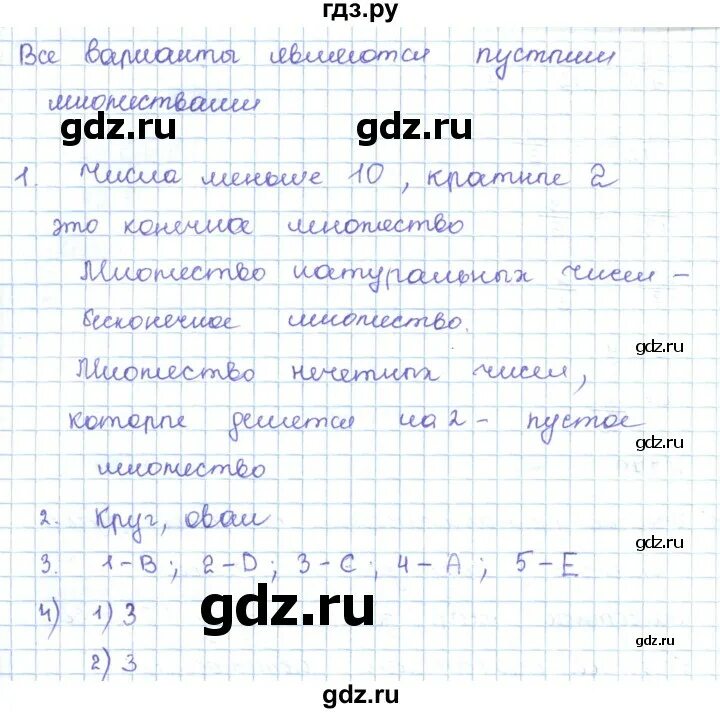 гдз.ру
Все варианты являются пустыми
множествами
gdz.ru gdz.ru
1. Числа меньше 10, кратные 2
это конечное множество
Множество натуральных чисел -
бесконечное множество.
gdz.ru
Множество нечетных чисел,
которые делятся на 2 - пустое
gdz.ru
множество
2. Круг, овал
gdz.ru
3. 1-B; 2-D; 3-C; 4-A; 5-E
4) 1) 3
gdz.ru
gdz.ru
2) 3
gdz.ru